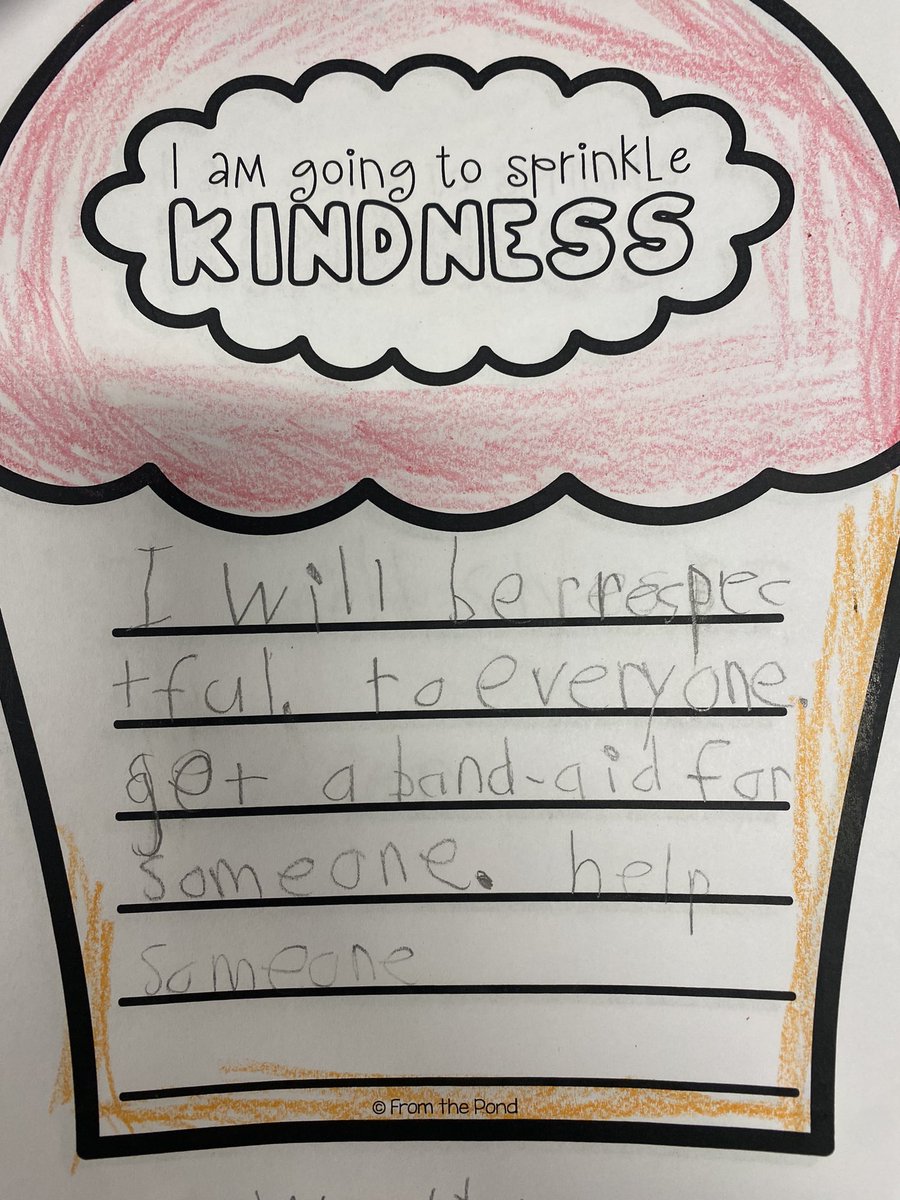 I am going to sprinkle
KINDNESS
I will be respec
tful. to everyone.
get a band-aid for
someone. help
someone
© From the Pond